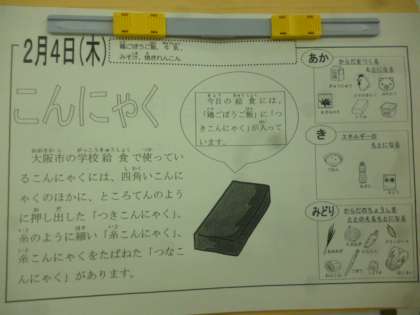 2月4日(木)
鶏ごぼうご飯、牛乳、
みそ汁、焼きれんこん
こんにゃく
今日の給食には、
「鶏ごぼうご飯」に「つ
きこんにゃく」が入って
います。
大阪市の学校給食で使ってい
るこんにゃくには、四角いこんに
ゃくのほかに、ところてんのよう
に押し出した「つきこんにゃく」、
糸のように細い「糸こんにゃく」、
糸こんにゃくをたばねた「つなこ
んにゃく」があります。
あか
からだをつくる
もとになる
ぎゅうにゅう
き
エネルギーの
もとになる
ごはん
みどり
からだのちょうしを
ととのえるもとになる